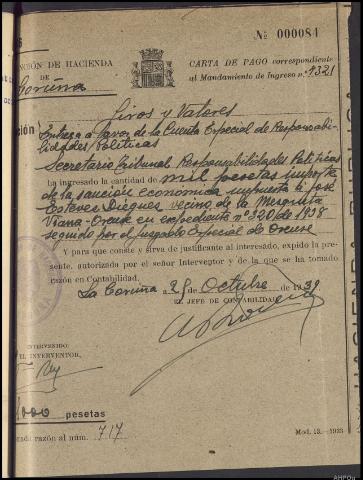 Nº 000084
NCIÓN DE HACIENDA
DE
Coruña
CARTA DE PAGO correspondiente
al Mandamiento de Ingreso nº 1321
Giros y Valores
Entrega a favor de la Cuenta Especial de Responsabi-
lidades Políticas
Secretario Tribunal Responsabilidades Políticas
ha ingresado la cantidad de mil pesetas importe
de la sanción económica impuesta a José
Esteves Diéguez vecino de la Mezquita
Viana-Orense en expediente nº 320 de 1938
seguido por el juzgado Especial de Orense
Y para que conste y sirva de justificante al interesado, expido la pre-
sente, autorizada por el señor Interventor y de la que se ha tomado
razón en Contabilidad.
La Coruña 25 de Octubre de 1939
EL JEFE DE CONTABILIDAD
INTERVENIDO:
EL INTERVENTOR,
1000 pesetas
mada razón al núm. 717
Mod. 13.—1933
AHPOu